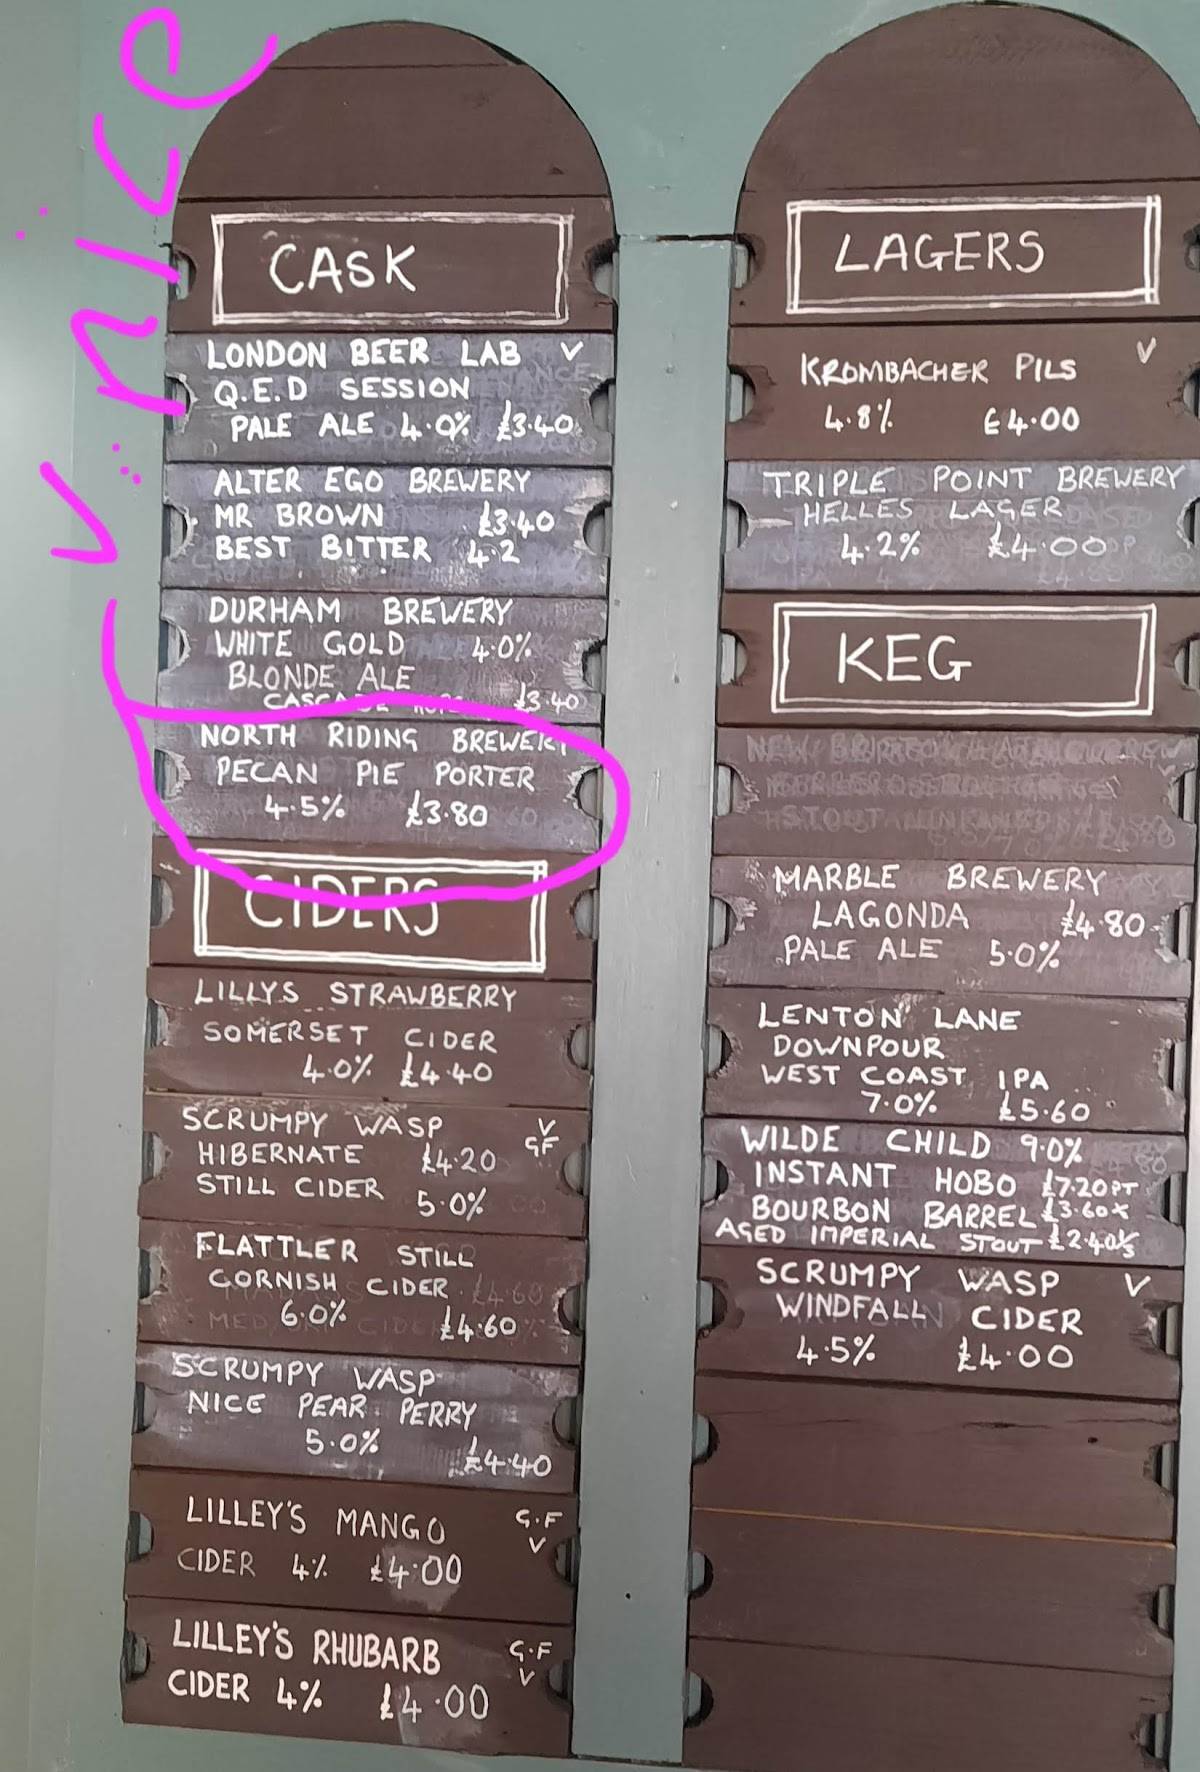 v. nice
CASK
LONDON BEER LAB V
Q.E.D SESSION
PALE ALE 4.0% £3.40
ALTER EGO BREWERY
MR BROWN £3.40
BEST BITTER 4.2
DURHAM BREWERY
WHITE GOLD 4.0%
BLONDE ALE
CASCADE HOPS £3.40
NORTH RIDING BREWERY
PECAN PIE PORTER
4.5% £3.80
CIDERS
LILLYS STRAWBERRY
SOMERSET CIDER
4.0% £4.40
SCRUMPY WASP V
GF
HIBERNATE £4.20
STILL CIDER 5.0%
FLATTLER STILL
CORNISH CIDER
6.0% £4.60
SCRUMPY WASP
NICE PEAR PERRY
5.0% £4.40
LILLEY'S MANGO G.F
V
CIDER 4% £4.00
LILLEY'S RHUBARB G.F
V
CIDER 4% £4.00
LAGERS
KROMBACHER PILS V
4.8% £4.00
TRIPLE POINT BREWERY
HELLES LAGER
4.2% £4.00
KEG
STOUT
MARBLE BREWERY
LAGONDA £4.80
PALE ALE 5.0%
LENTON LANE
DOWNPOUR
WEST COAST IPA
7.0% £5.60
WILDE CHILD 9.0%
INSTANT HOBO £7.20PT
BOURBON BARREL £3.60
AGED IMPERIAL STOUT £2.40⅓
SCRUMPY WASP V
WINDFALL CIDER
4.5% £4.00